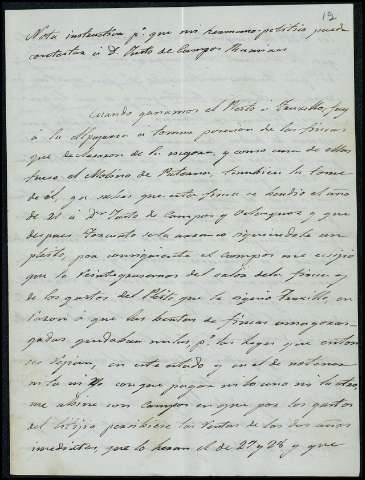 19
Nota instructiva pª que mi hermano politico pueda
contestar á Dⁿ Justo de Campos
Cuando ganamos el Pleito á Truxillo, fuy
á la Alpujarra a tomar posesion de las fincas
que declararon de la mejora, y como una de ellas
fuese el Molino de Paterna, tambien la tomé
de él, ya sabes que esta finca se bendio el año
de 21 á Dⁿ Justo de Campos y Velazquez y que
despues Torcuato se la arranco siguiendole un
pleito, por consiguiente el Campos me exijio
que le Reintegrasemos del valor de la finca y
de los gastos del Pleito que le siguio Truxillo, en
razon á que las bentas de fincas amayoraz-
gadas quedaban nulas pr las leyes que entonces
rejian, en este estado y en el de no tener
ni tu ni yo con que pagar ni lo uno ni lo otro,
me abine con Campos en que por los gastos
del litijio percibiese las Rentas de los dos años
inmediatos, que lo heran el de 27 y 28 y que